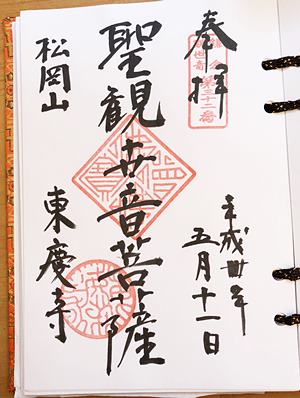 奉拝
第三十二番
平成卅年
五月十一日
聖観世音菩薩
松岡山
東慶寺